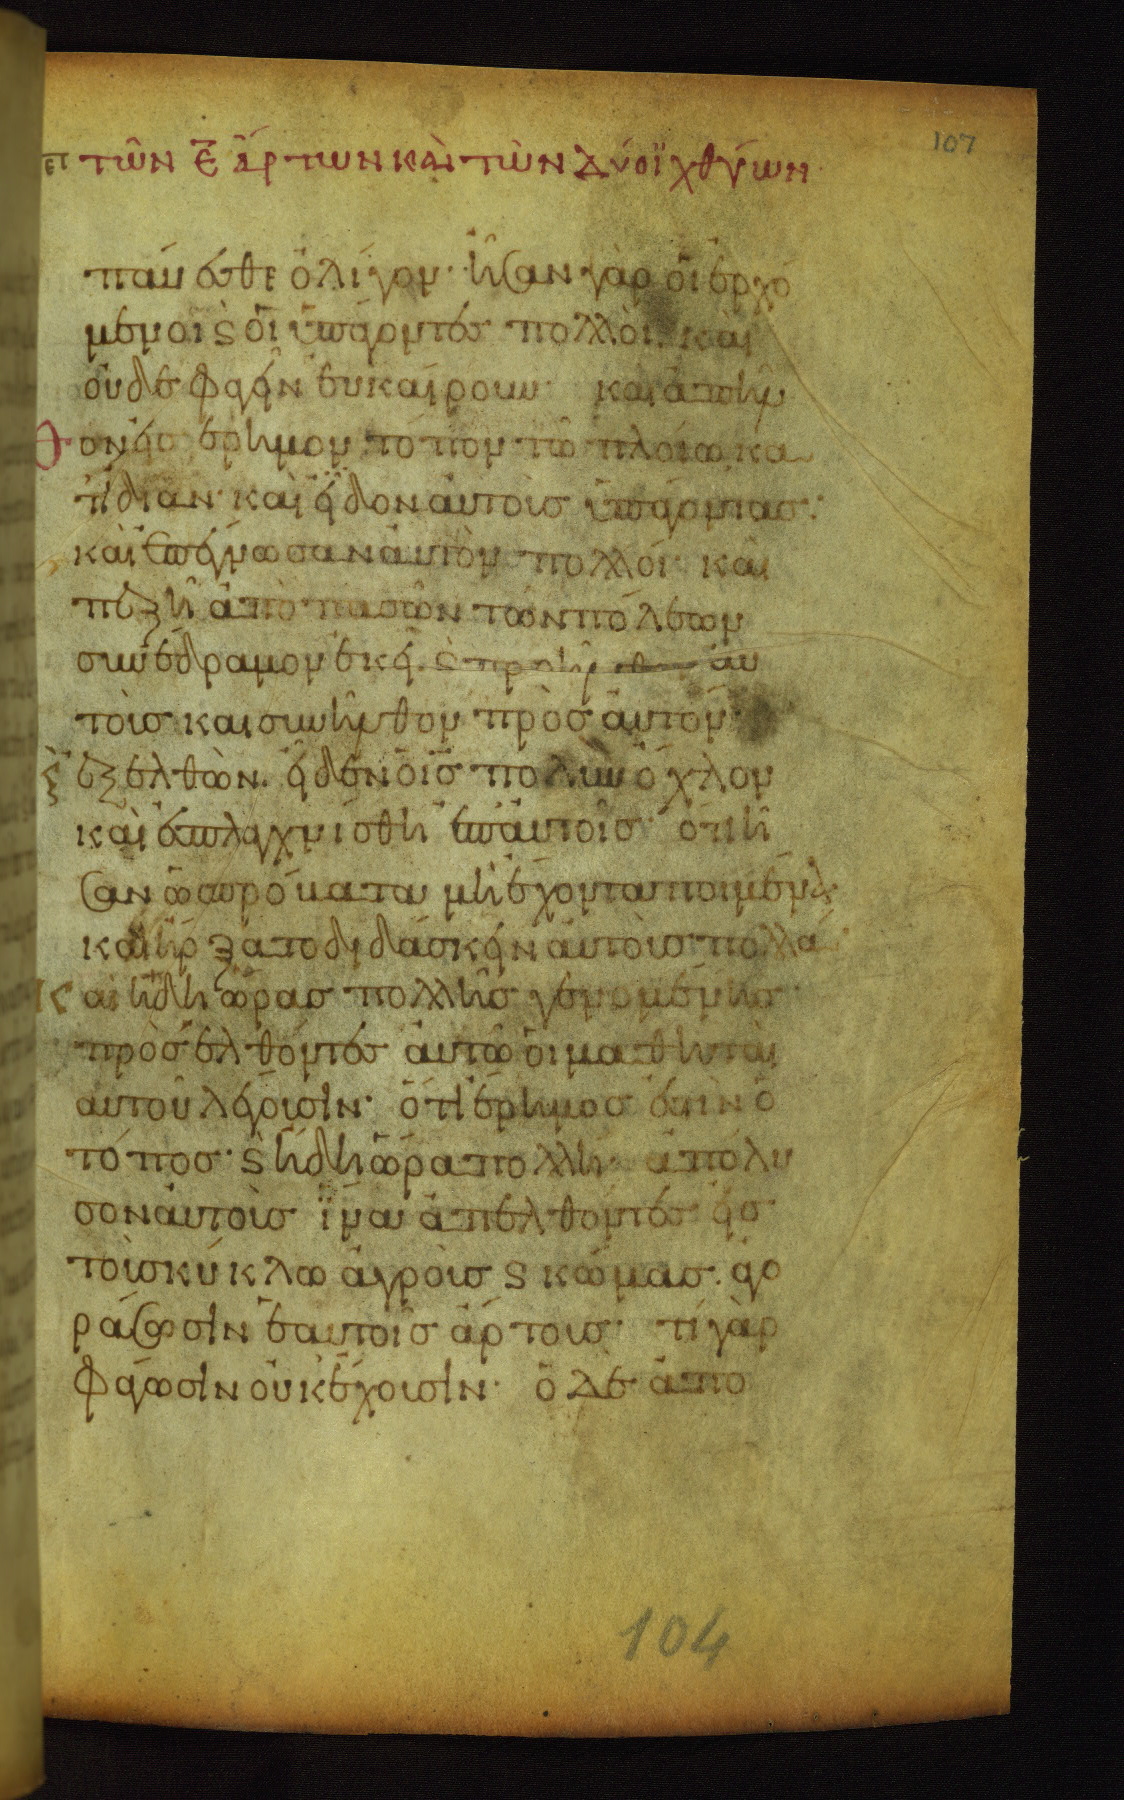 107
τῶν ε̄ ἄρτων καὶ τῶν δύο ἰχθύων
παύεσθε ὀλίγον· ἦσαν γὰρ οἱ ἐρχό
μενοι ϗ οἱ ὑπάγοντες πολλοὶ. καὶ
οὐδὲ φαγεῖν εὐκαίρουν· καὶ ἀπῆλ
θον εἰς ἔρημον τόπον τῶ πλοίω κα
τ' ἰδίαν· καὶ εἶδον αὐτοὺς ὑπάγοντας·
καὶ ἐπέγνωσαν αὐτὸν πολλοί· καὶ
πεζῆ ἀπὸ πασῶν τῶν πόλεων
συνέδραμον ἐκεῖ. ϗ προῆλθον αὐ
τοὺς καὶ συνῆλθον πρὸς αὐτόν·
ἐξελθὼν. εἶδεν ὁ ἰς πολὺν ὄχλον
καὶ ἐσπλαγχνίσθη ἐπ' αὐτοῖς· ὅτι ἦ
σαν ὡς πρόβατα μὴ ἔχοντα ποιμένα·
καὶ ἤρξατο διδάσκειν αὐτοὺς πολλά·
Καὶ ἤδη ὥρας πολλῆς γενομένης
προσελθόντες αὐτῶ οἱ μαθηταὶ
αὐτοῦ λέγουσιν· ὅτι ἔρημος ἐστὶν ὁ
τόπος· ϗ ἤδη ὥρα πολλή· ἀπόλυ
σον αὐτοὺς ἵνα ἀπελθόντες εἰς
τοὺς κύκλω ἀγροὺς ϗ κώμας. ἀγο
ράσωσιν ἑαυτοῖς ἄρτους· τί γὰρ
φάγωσιν οὐκ ἔχουσιν· ὁ δὲ ἀπο
104